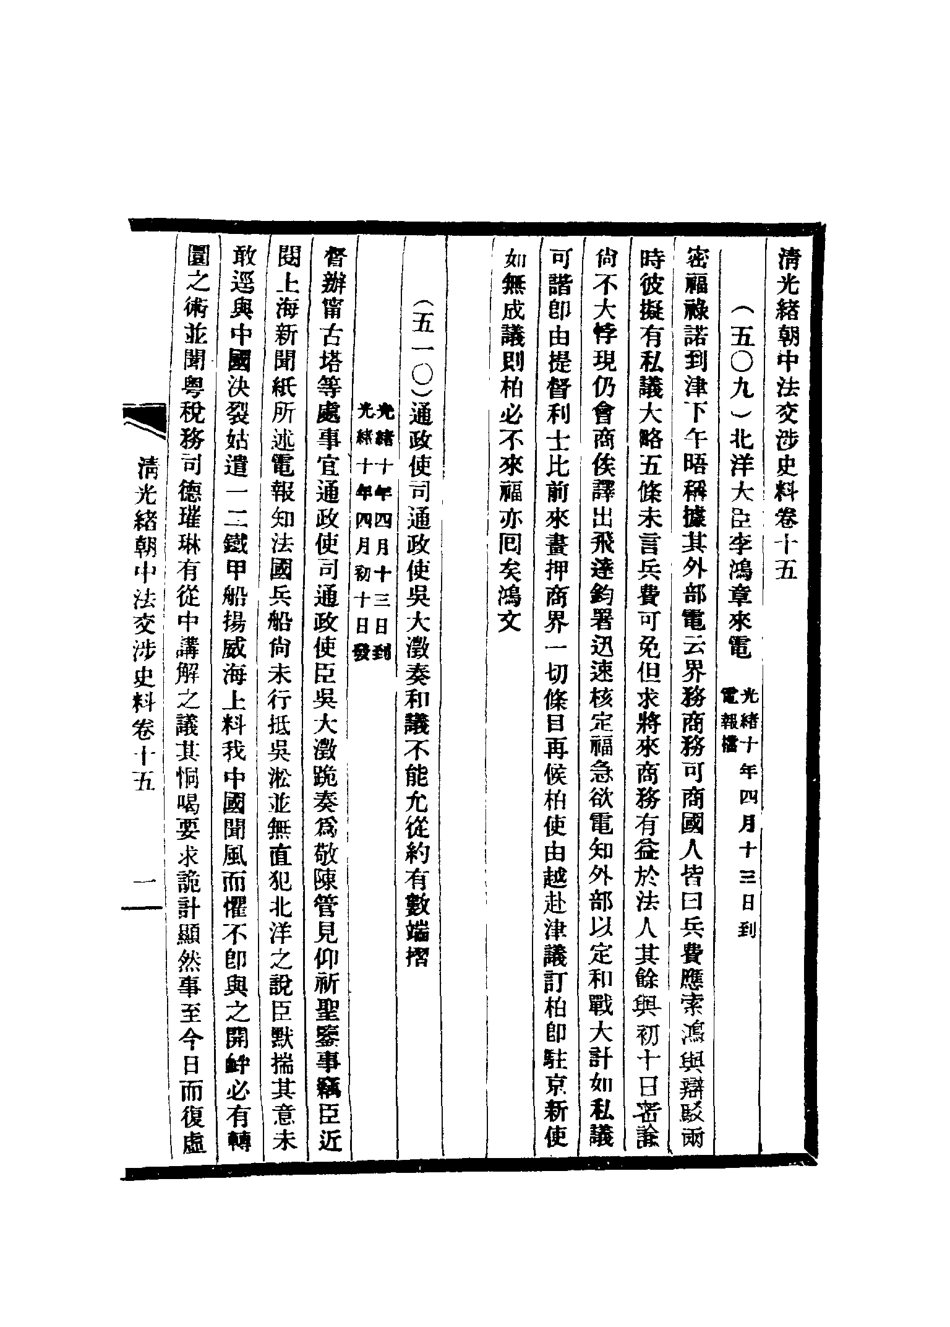 清光緒朝中法交涉史料卷十五
（五〇九）北洋大臣李鴻章來電
光緒十年四月十三日到
電報檔
密福祿諾到津下午晤稱據其外部電云界務商務可商國人皆曰兵費應索鴻與辯駁兩
時彼擬有私議大略五條未言兵費可免但求將來商務有益於法人其餘與初十日密諭
尙不大悖現仍會商俟譯出飛達鈞署迅速核定福急欲電知外部以定和戰大計如私議
可諧卽由提督利士比前來畫押商界一切條目再候柏使由越赴津議訂柏卽駐京新使
如無成議則柏必不來福亦囘矣鴻文
（五一〇）通政使司通政使吳大澂奏和議不能允從約有數端摺
光緒十年四月十三日到
光緒十年四月初十日發
督辦甯古塔等處事宜通政使司通政使臣吳大澂跪奏爲敬陳管見仰祈聖鑒事竊臣近
閱上海新聞紙所述電報知法國兵船尙未行抵吳淞並無直犯北洋之說臣默揣其意未
敢逕與中國決裂姑遣一二鐵甲船揚威海上料我中國聞風而懼不卽與之開衅必有轉
圜之術並聞粵稅務司德璀琳有從中講解之議其恫喝要求詭計顯然事至今日而復虛
清光緒朝中法交涉史料卷十五
一